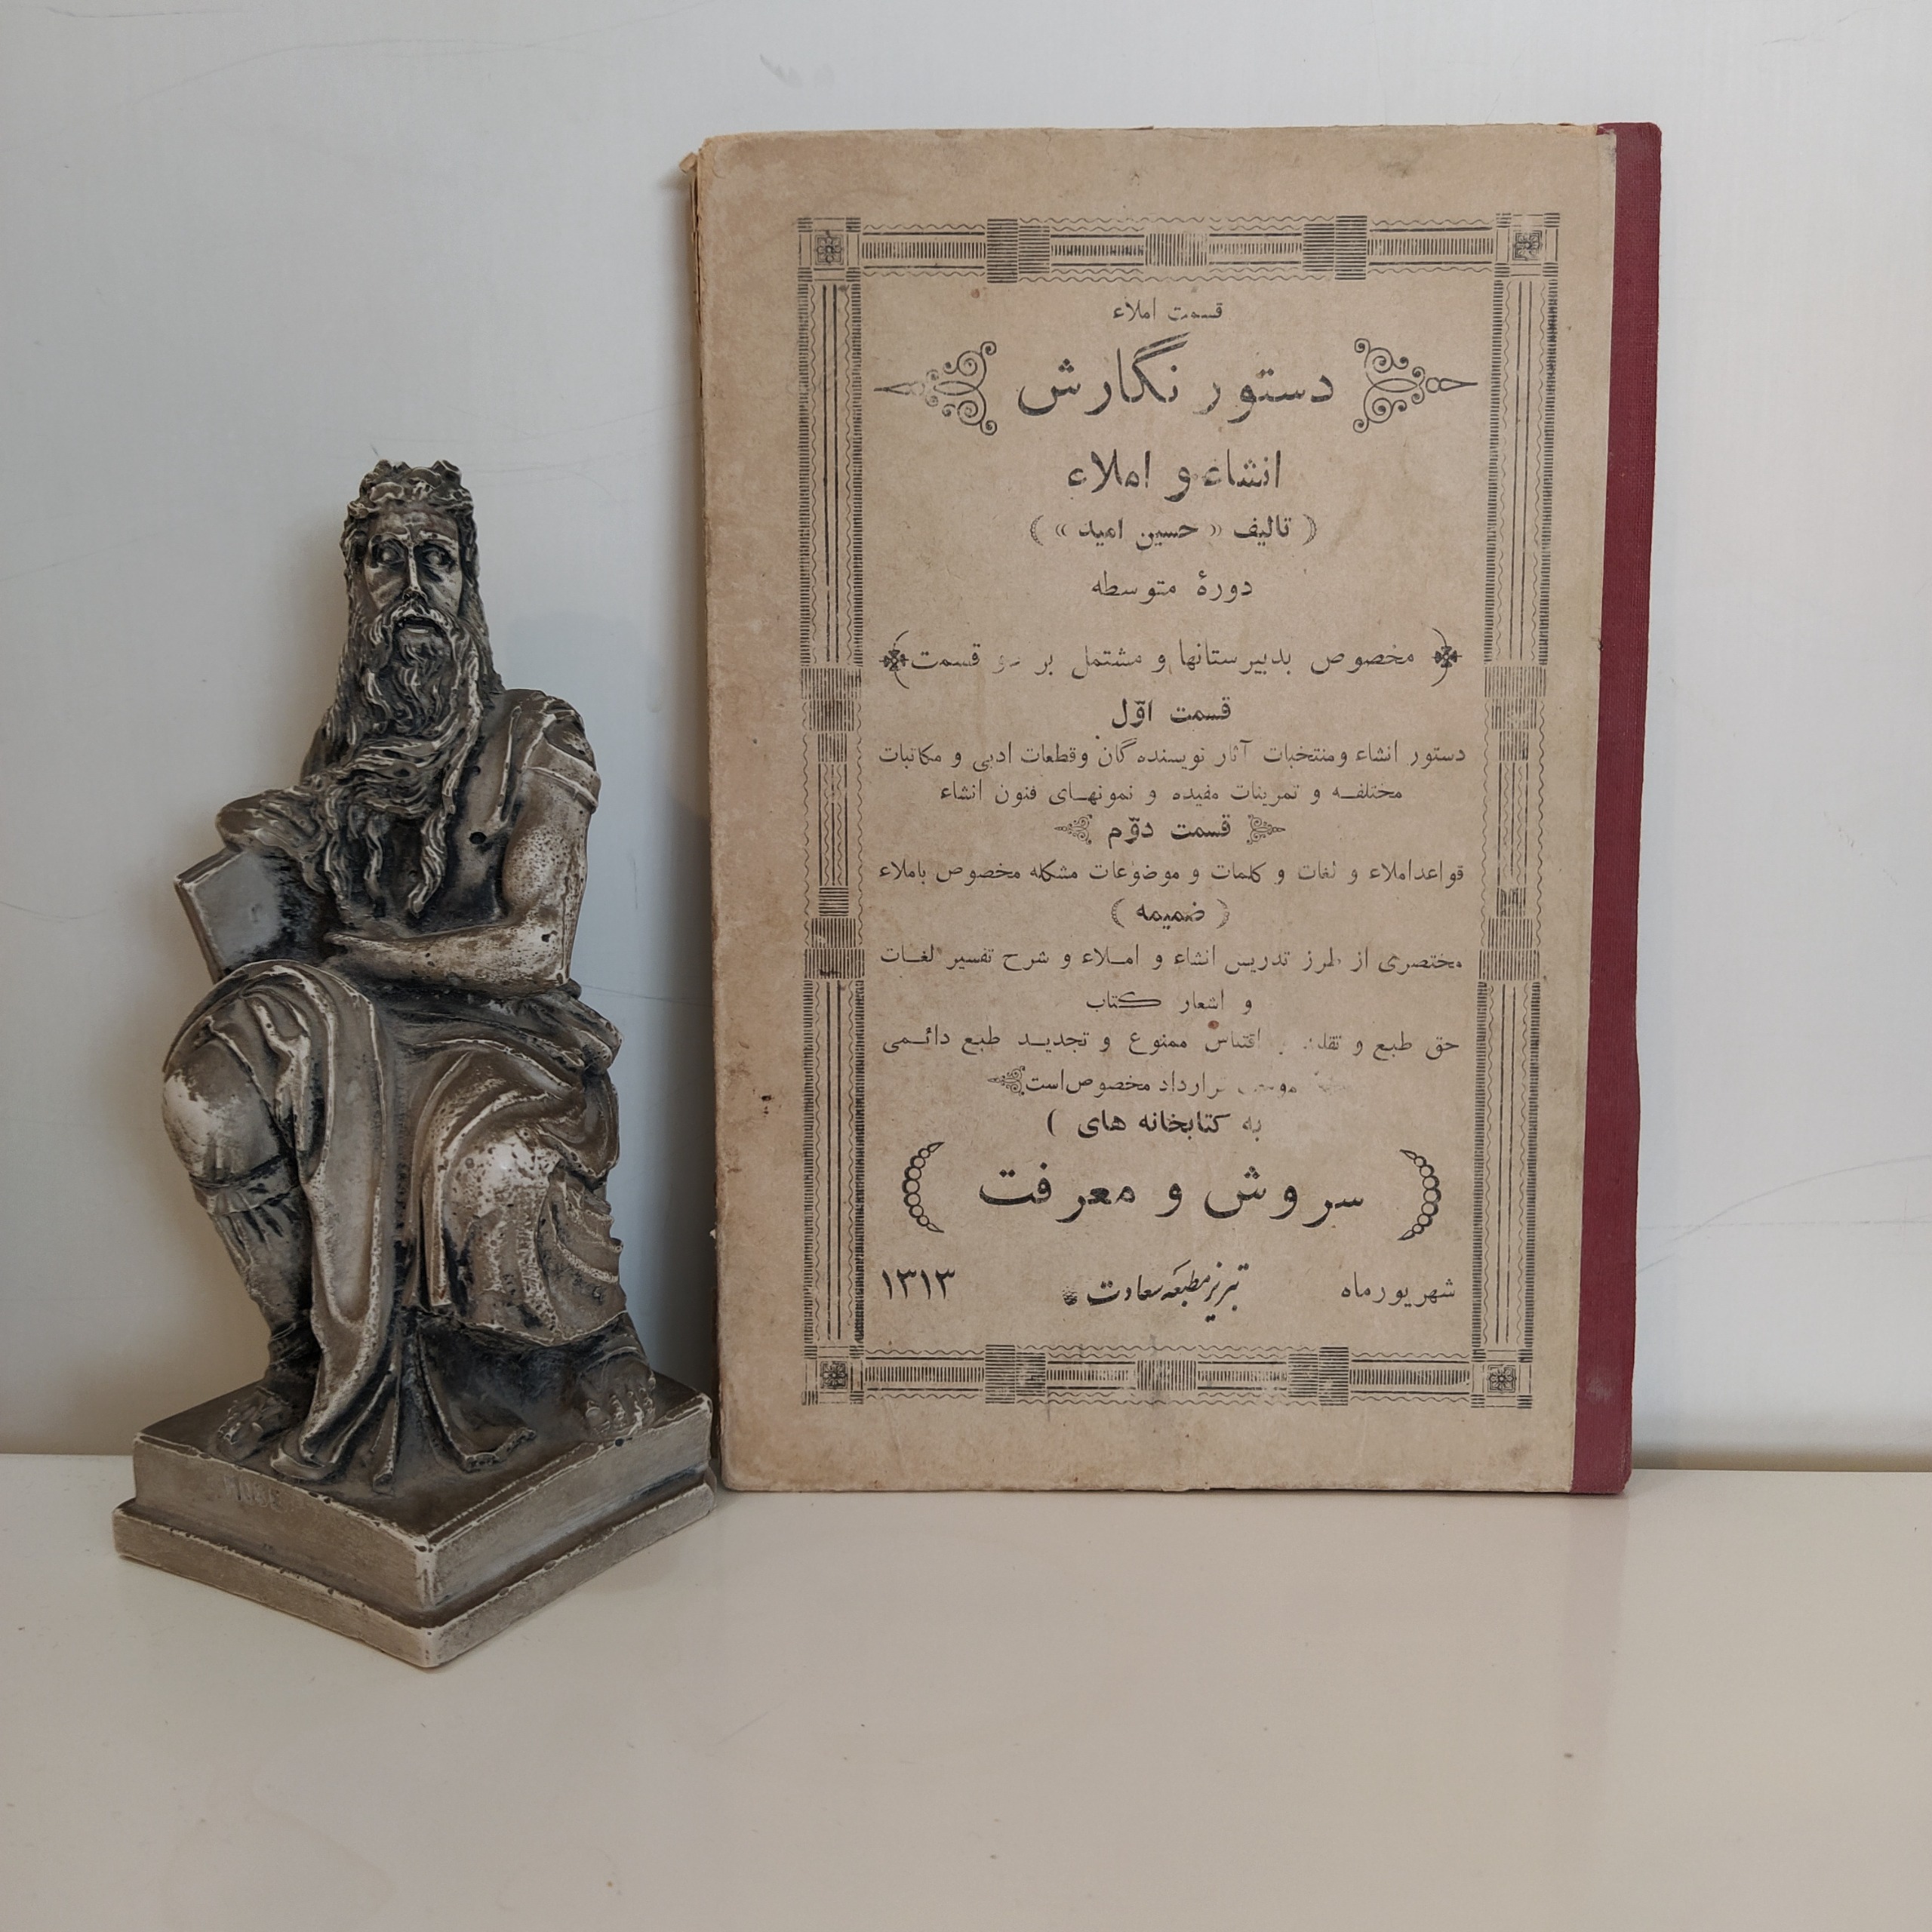 قسمت املاء
دستور نگارش
انشاء و املاء
( تالیف « حسین امید » )
دورۀ متوسطه
مخصوص بدبیرستانها و مشتمل بر دو قسمت
قسمت اوّل
دستور انشاء ومنتخبات آثار نویسنده گان وقطعات ادبی و مکاتبات
مختلفـه و تمرینات مفیده و نمونهـای فنون انشاء
قسمت دوّم
قواعداملاء و لغات و کلمات و موضوعات مشکله مخصوص باملاء
( ضمیمه )
مختصری از طرز تدریس انشاء و امـلاء و شرح تفسیر لغـات
و اشعار کتاب
حق طبع و اقتباس ممنوع و تجدیـد طبع دائـمی
مخصوص‌است
به کتابخانه های )
سروش و معرفت
شهریورماه تبریز مطبعه سعادت ۱۳۱۳